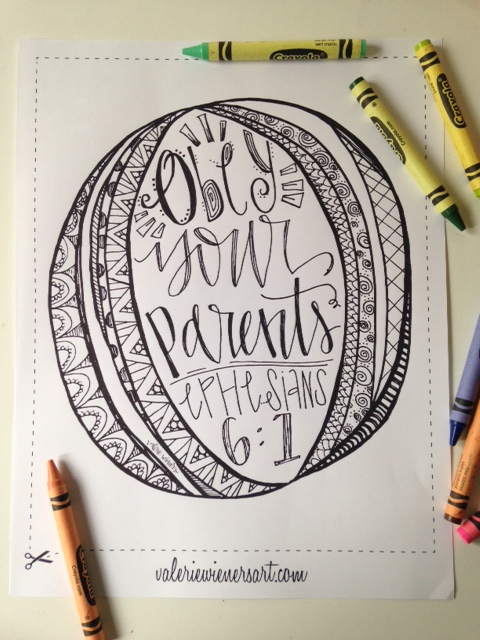 Crayola
Crayola
Crayola
Obey
your
parents
Ephesians
6:1
valeriewienersart.com
Crayola